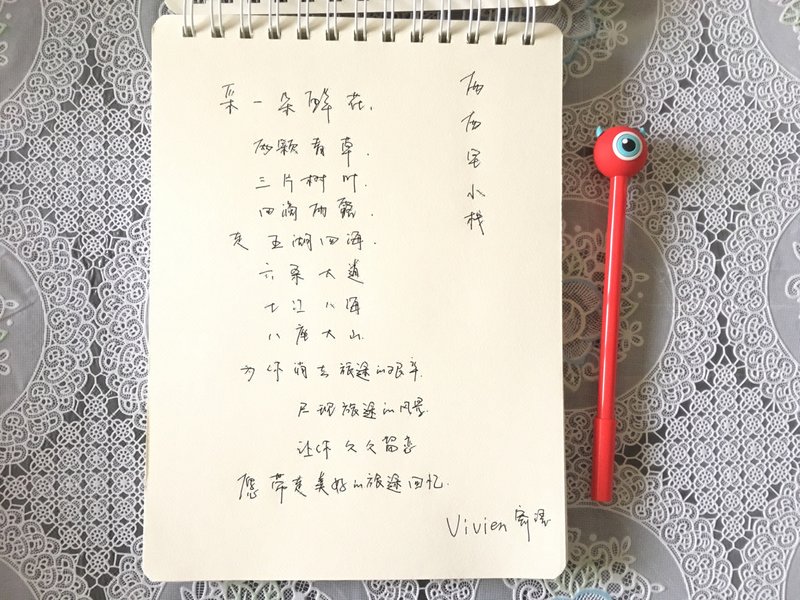 小栈
采一朵鲜花,
两颗青草.
三片树叶.
四滴雨露.
走五湖四海.
六条大道
七江八海
八座大山.
为你消去旅途的艰辛.
尽现旅途的风景.
让你久久留恋
愿带走美好的旅途回忆.
Vivien